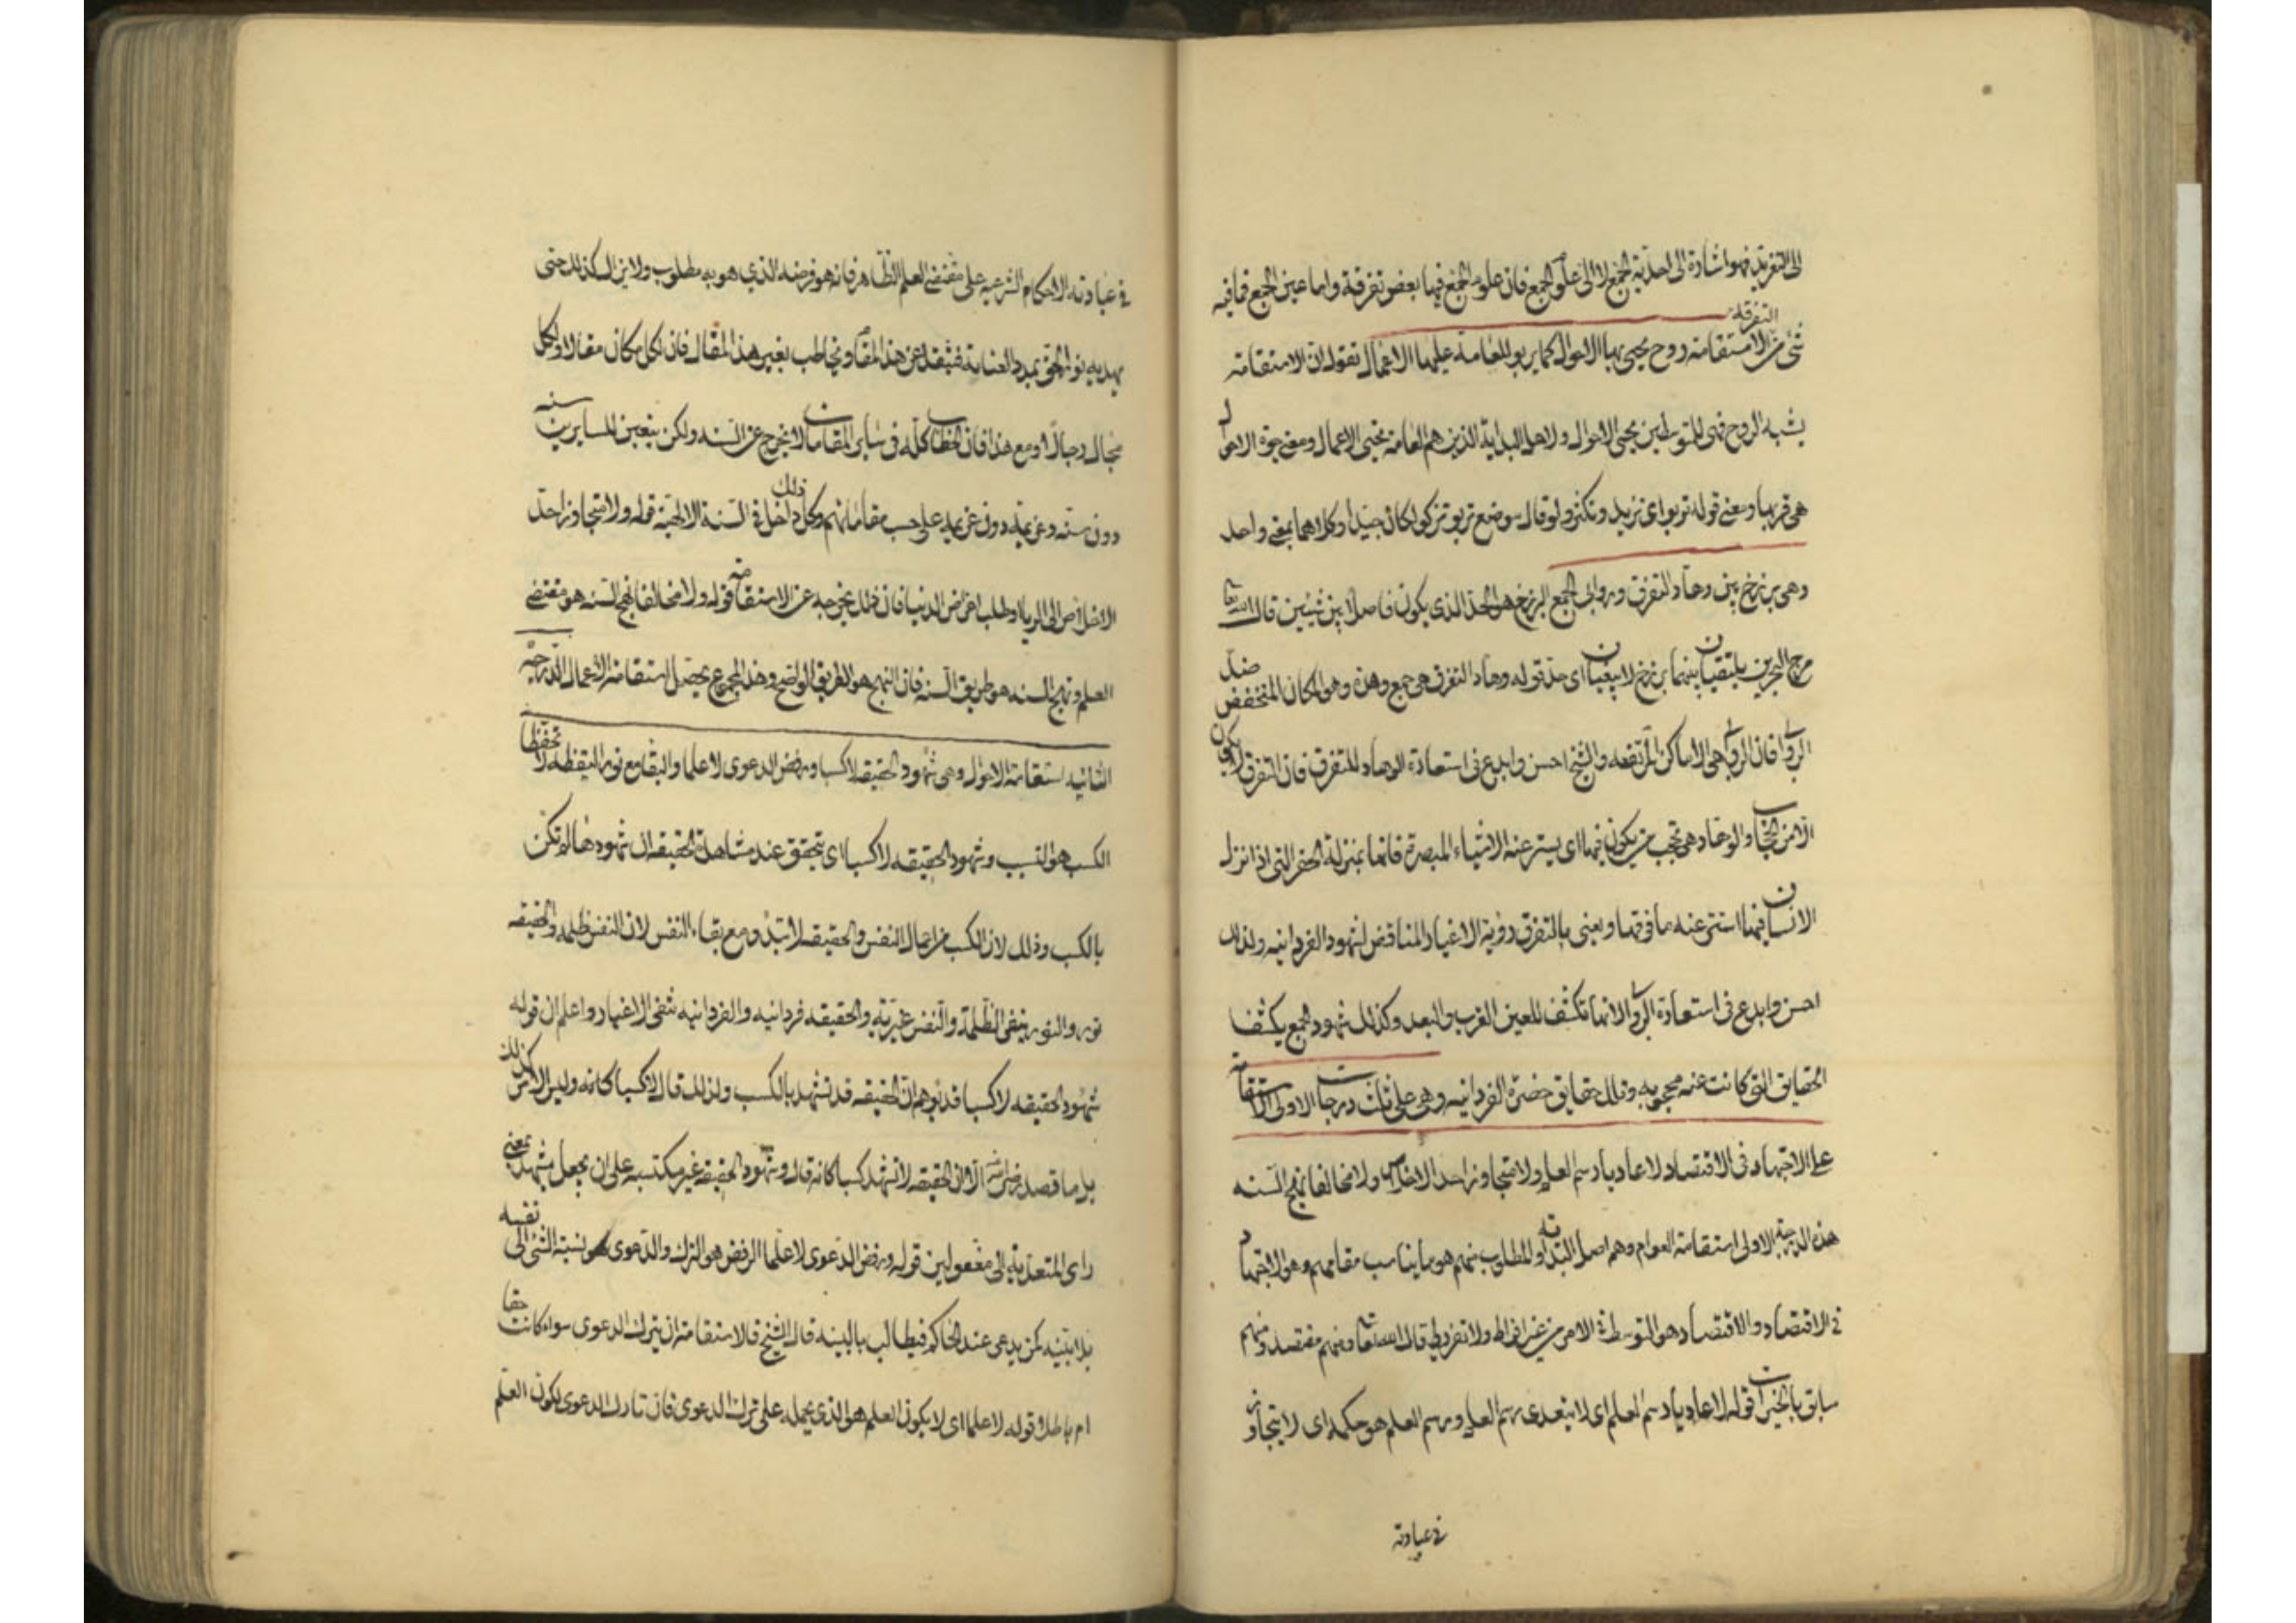 الى التفريد فهو اشارة الى احدية الجمع لا الى علوم الجمع فان علوم الجمع فيها بعض تفرقة واما عين الجمع فما فيه
التفرقة
شئ من الاستقامة روح يحيى بها الاحوال كما يربو للعامة عليها الاعمال نقول ان الاستقامة
يشبه الروح فهى للمتوسطين يحيى الاحوال ولاهل البداية الذين هم العامة تحيى الاعمال ومعنى حيوة الاحوال
هى قربها ومعنى قوله تربو اى تزيد وتكثر ولو قال موضع تربو تزكو لكان جيدا وكلاهما بمعنى واحد
وهى برزخ بين وهاد التفرق وروابى الجمع البرزخ هو الحد الذى يكون فاصلا بين شيئين قال الله تعا
مرج البحرين يلتقيان بينهما برزخ لا يبغيان اى حد قوله وهاد التفرق هى جمع وهدة وهو المكان المنخفض ضد
الروابى فان الروابى هى الاماكن المرتفعه والشيخ احسن وابدع فى استعارة الوهاد للتفرق فان التفرق يكون
الامن الحجاب والوهاد هى تحجب من يكون فيها اى يستر عنه الاشياء المبصرة فانها بمنزلة الحفر التى اذا نزل
الانسان فيها استتر عنه ما فوقها ويعنى بالتفرق رؤية الاغيار المناقض لشهود الفردانيه ولذلك
احسن وابدع فى استعارة الروابى لانها تكشف للعين القرب والبعد وكذلك شهود الجمع يكشف
الحقايق التى كانت عنه محجوبه وتلك حقايق حضرة الفردانيه وهى على ثلث درجات الاولى الاستقامة
على الاجتهاد فى الاقتصاد لا عاديا رسم العلم ولا متجاوزا حد الاخلاص ولا مخالفا نهج السنه
هذه الدرجة الاولى استقامة العوام وهم اهل البداية والمطلوب منهم هو ما يناسب مقامهم وهو الاجتهاد
فى الاقتصاد والاقتصاد هو التوسط فى الامر من غير افراط ولا تفريط قال الله تعا ومنهم مقتصد ومنهم
سابق بالخيرات قوله لا عاديا رسم العلم اى لا يتعدى رسم العلم ورسم العلم هو حكمه اى لا يتجاوز
فى عبادته
فى عبادته الاحكام الشرعيه على مقتضى العلم الظاهر فانه هو فرضه الذى هو به مطلوب ولا يزال كذلك حتى
يهديه نور الحق بمدد العناية فينقله عن هذا المقام ويخاطب بغير هذا المقال فان لكل مكان مقالا ولكل
مجال رجالا ومع هذا فان الخطاب كله فى ساير المقامات لا يخرج عن السنه ولكن يتعين للسايرين سنه
دون سنه وعزيمة دون عزيمة على حسب مقاماتهم وكل ذلك داخل فى السنة الالهية قوله ولا متجاوزا حد
الاخلاص الى الريا وطلب اعراض الدنيا فان ذلك يخرجه عن الاستقامة قوله ولا مخالفا نهج السنه هو مقتضى
العلم ونهج السنه هو طريق السنه فان النهج هو الطريق الواضح وهذا المجموع يحصل استقامة الاعمال الدرجة
الثانيه استقامة الاحوال وهى شهود الحقيقه لا كسبا ورفض الدعوى لا علما والبقا مع نور اليقظه لا تحفظا
الكسب هو التسبب وشهود الحقيقه لا كسبا اى يتحقق عند مشاهدة الحقيقه ان شهودها لم تكن
بالكسب وذلك لان الكسب من اعمال النفس والحقيقه لا تبدو مع بقاء النفس لان النفس ظلمه والحقيقه
نور والنور ينفى الظلمة والنفس غيرية والحقيقه فردانيه والفردانيه تنفى الاغيار واعلم ان قوله
شهود الحقيقه لا كسبا قد يوهم ان الحقيقه قد تشهد بالكسب ولذلك قال لا كسبا كانه وليس الامر كذلك
بل ما قصد الا ان الحقيقه لا تشهد كسبا كانه قال وشهود الحقيقه غير مكتسبه على ان يجعل يشهد بمعنى
راى المتعدية الى مفعولين قوله ورفض الدعوى لا علما الرفض هو الترك والدعوى هو نسبة الشئ الى نفسه
بلا بينه كمن يدعى عند الحاكم فيطالب بالبينه قال الشيخ فالاستقامة ان يترك الدعوى سواء كانت حقا
ام باطلا وقوله لا علما اى لا يكون العلم هو الذى يحمله على ترك الدعوى فان تارك الدعوى لكون العلم